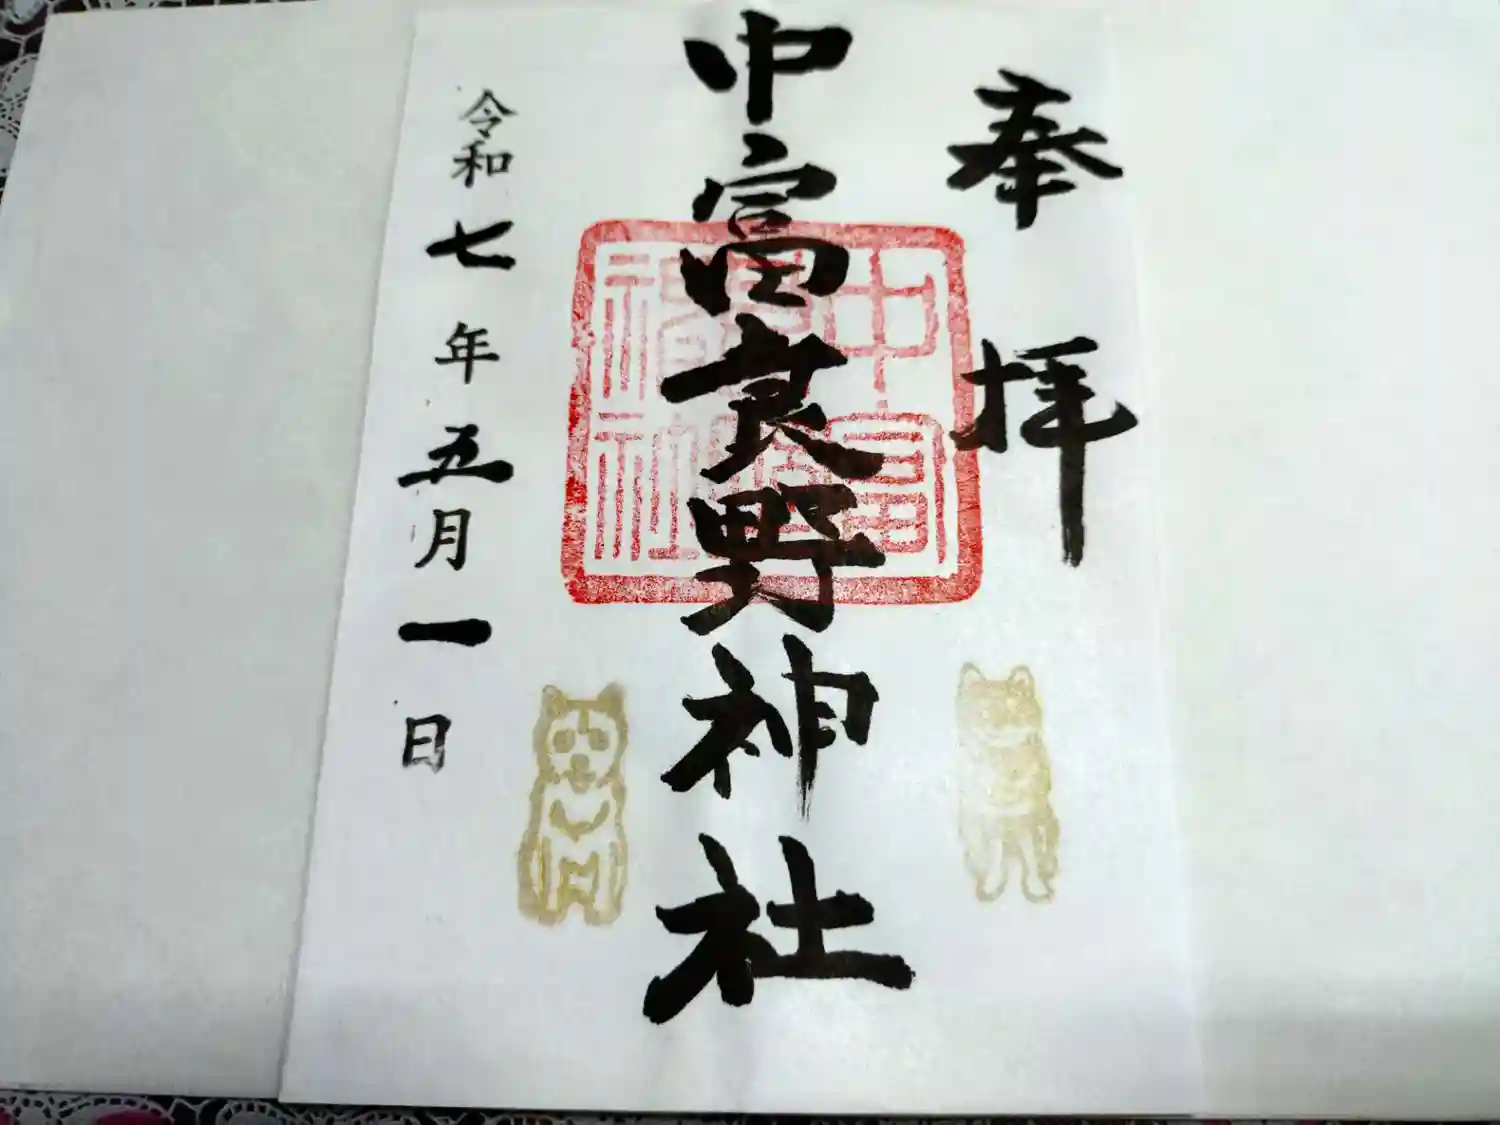 奉拝
中富良野神社
中富良野神社
令和七年五月一日